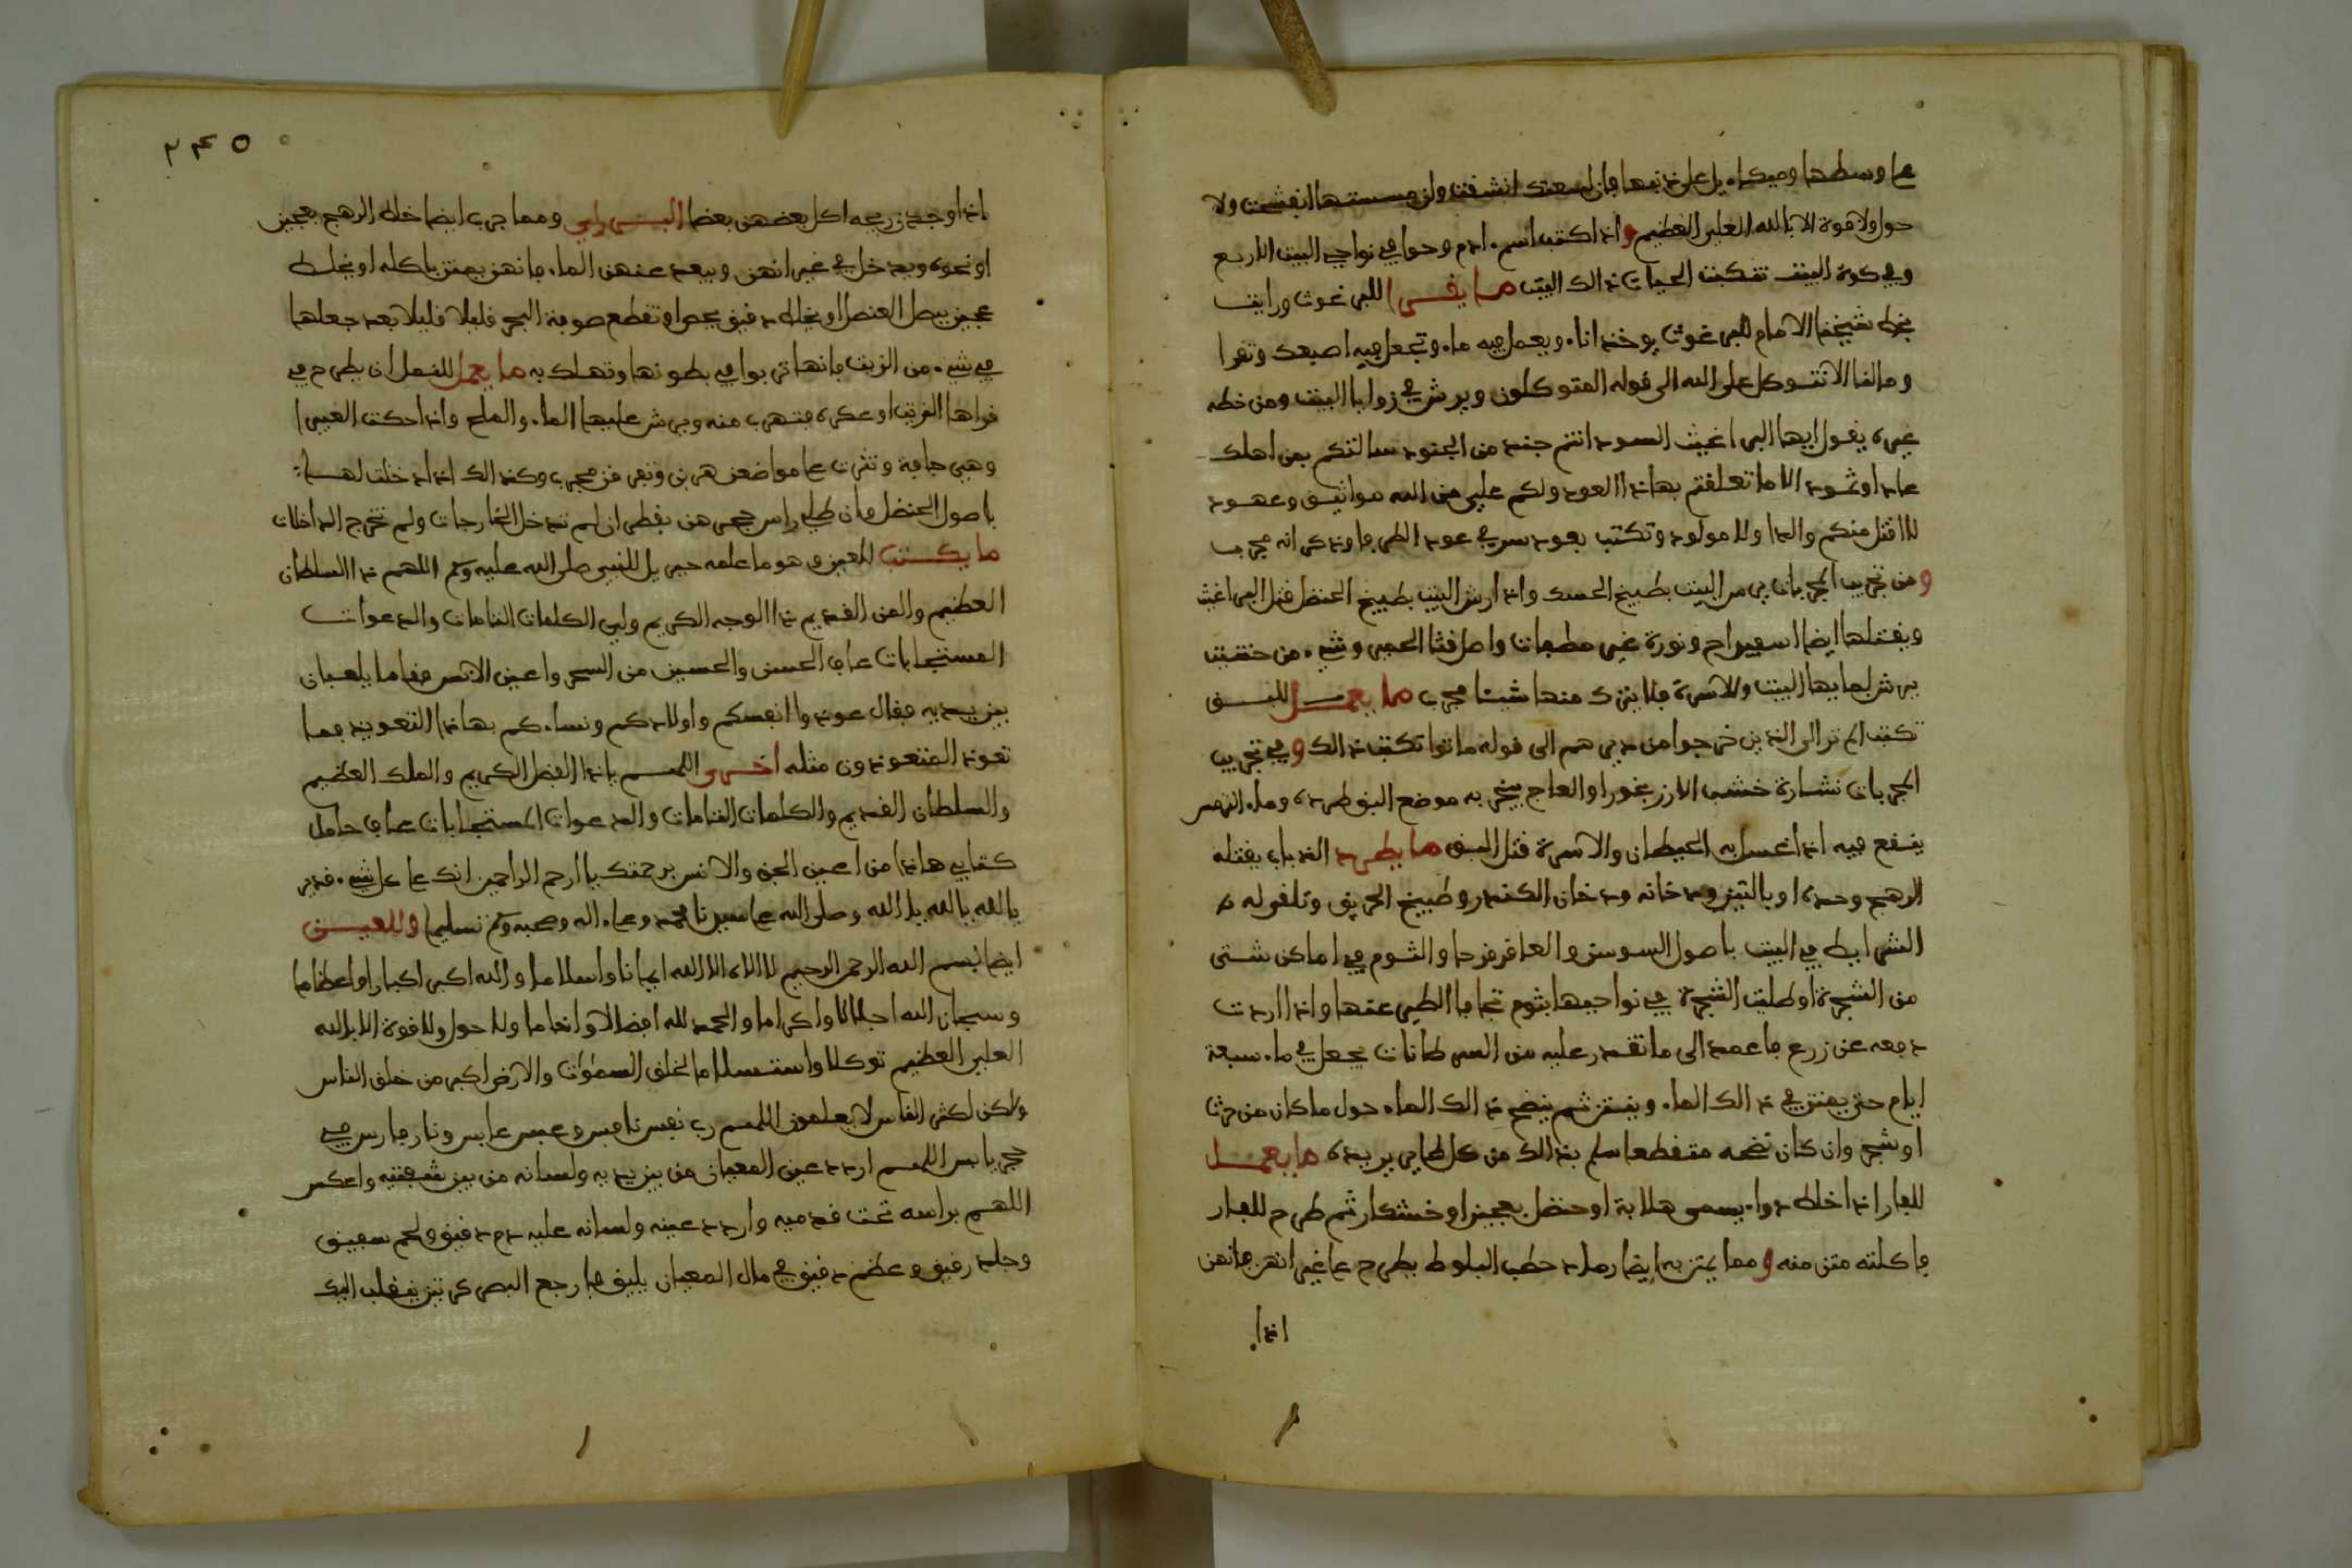 على وسطها وميكاءيل على ذنبها فان لسعتك انشقت وان مسستها انفشت ولا
حول ولا قوة الا بالله العلي العظيم واذا كتب اسم ءادم وحوا في نواحي البيت الاربع
وفي كوة البيت تنكبت الحيات ذالك البيت ما يقرا للبرغوث ورايت
بخط شيخنا الامام للبرغوث يوخذ اناء ويعمل فيه ماء وتجعل فيه اصبعك وتقرا
وما لنا الا نتوكل على الله الى قوله المتوكلون ويرش في زوايا البيت ومن خطه
غيره يقول ايها البراغيث السود انتم جند من الجنود سالتكم بمن اهلك
عادا وثمود الا ما تعلقتم بهاذا العود ولكم علي من الله مواثيق وعهود
لا اقتل منكم والدا ولا مولود وتكتب بعود سرو في عود الطرفا وذكر انه مجرب
ومن تجريب المجربات يرمس البيت بطبيخ الحسك واذا رش البيت بطبيخ الحنظل قتل البراغيث
ويقتلها ايضا اسفيداج ونورة غير مطفات واصل قثا الحمير وشيء من حنتيت
يرش بمايها البيت والاسرة فلا يترك منها شيئا مجرب ما يعمل للبق
تكتب الم تر الى الذين خرجوا من ديرهم الى قوله ماتوا تكتب ذالك وفي تجريب
المجربات نشارة خشب الارز بخورا والعاج يبخر به موضع البق طرده وماء الترمس
ينقع فيه اذا غسل به الحيطان والاسرة قتل البق ما يطرد الذباب يقتله
الرهج وحده او بالتبن ودخانه ودخان الكندر وطبيخ الخربق وتلقى له
الشرايط في البيت باصول السوسن والعاقرقرحا والثوم في اماكن شتى
من الشجرة او طليت الشجرة في نواحيها بثوم تجافا الطير عنها واذا اردت
دفعه عن زرع فاعمد الى ما تقدر عليه من السرطانات يجعل في ماء سبعة
ايام حتى يمتن في ذالك الماء وينتن ثم ينضح ذالك الماء حول ما كان من حرث
او شجر وان كان نضحه متقطعا سلم بذالك من كل طاير يريده ما يعمل
للفار اذا خلط دواء يسمى هلابة او حنظل بعجين او خشكار ثم طرح للفار
فاكلته متن منه ومما يمتن به ايضا رماد حطب البلوط يطرح على غيرانهن فانهن
اذا
٢٤٥
اذا وجدن ريحه اكل بعضهن بعضا البيش رابي ومما جرب ايضا خلط الرهج بعجين
او نحوه ويدخل في غيرانهن ويبعد عنهن الماء فانهن يمتن باكله او يخلط
عجين ببصل العنصل او يخلط دقيق بجص او تقطع صوفة البحر قليلا قليلا بعد جعلها
في شيء من الزيت فانها تربوا في بطونها وتهلك به ما يعمل للنمل ان يطرح في
قراها الزيت او عكره فتهرب منه ويرش عليها الماء والملح واذا حكت الغبيرا
وهي جافة ونثرت على مواضعهن هربن وتفرقن مجرب وكذالك اذا دخلت لها
باصول الحنظل وان طلي راس جحرهن بقطران لم تدخل الخارجات ولم تخرج الداخلات
ما يكتب للعين وهو ما علمه جبريل للنبي صلى الله عليه وسلم اللهم ذا السلطان
العظيم والمن القديم ذا الوجه الكريم ولي الكلمات التامات والدعوات
المستجابات عاف الحسن والحسين من السحر واعين الانس فقاما يلعبان
بين يديه فقال عوذوا انفسكم واولادكم ونساءكم بهاذا التعويذ فما
تعوذ المتعوذون مثله اخرى اللهم ياذا الفضل الكريم والملك العظيم
والسلطان القديم والكلمات التامات والدعوات المستجابات عاف حامل
كتابي هاذا من اعين الجن والانس برحمتك يا ارحم الراحمين انك على كل شيء قدير
يالله يالله يا الله وصلى الله على سيدنا محمد وعلى ءاله وصحبه وسلم تسليما وللعين
ايضا بسم الله الرحمن الرحيم لا الاه الا الله ايمانا واسلاما والله اكبر اكبارا واعظاما
وسبحان الله اجلالا واكراما والحمد لله افضالا وانعاما ولا حول ولا قوة الا بالله
العلي العظيم توكلا واستسلاما لخلق السماوات والارض اكبر من خلق الناس
ولكن اكثر الناس لا يعلمون اللهم رب نفس نافس وعبس عابس ونار فارس في
حجر يابس اللهم اردد عين المعيان من بين يديه ولسانه من بين شفتيه واعكس
اللهم براسه تحت قدميه واردد عينه ولسانه عليه دم دفيق ولحم سفيق
وجلد رقيق وعظم دقيق في مال المعيان يليق فارجع البصر كرتين ينقلب اليك